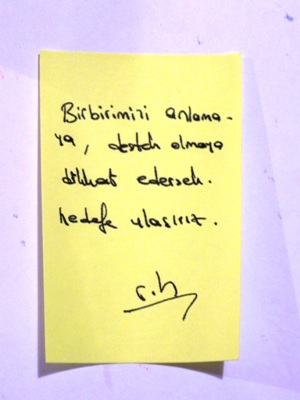 Birbirimizi anlama-
ya, destek olmaya
dikkat edersek.
hedefe ulaşırız.